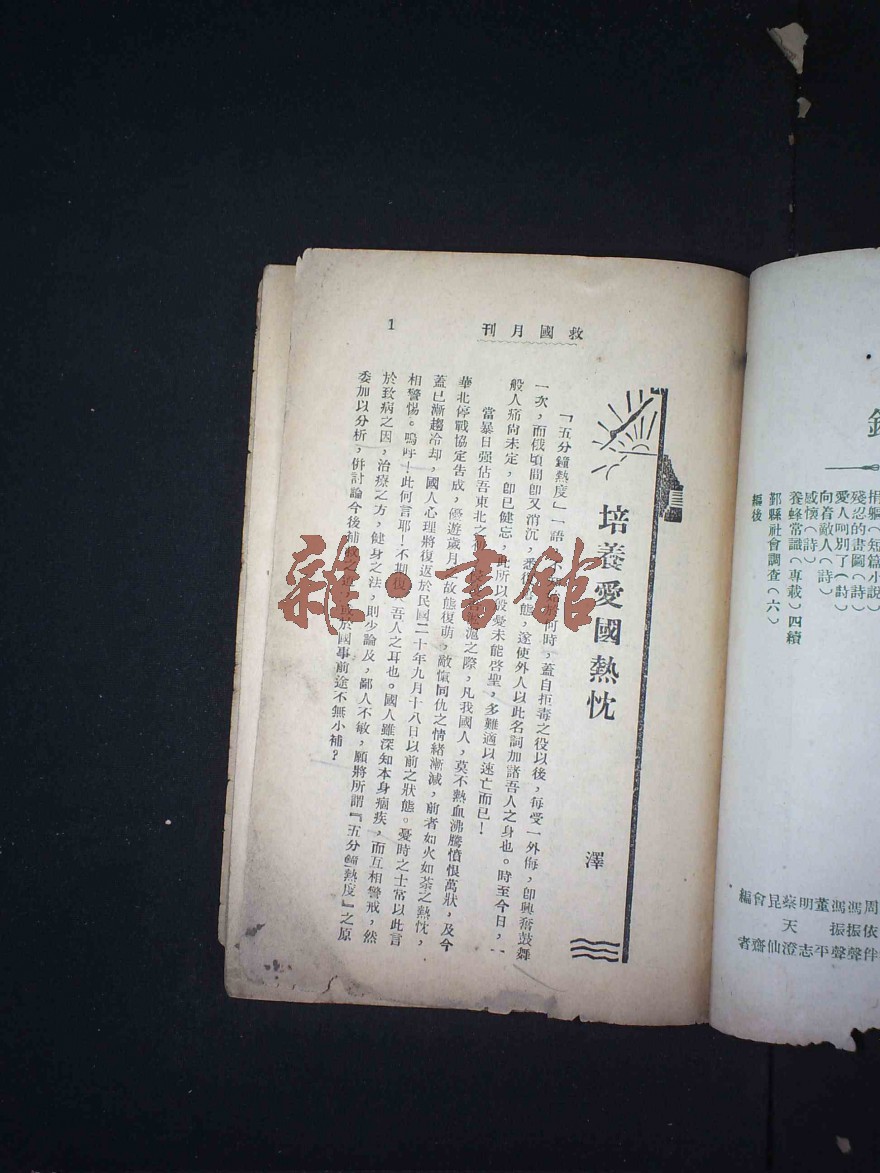 救國月刊
1
培養愛國熱忱
澤
『五分鐘熱度』一語,不知始於何時,蓋自拒毒之役以後,每受一外侮,卽興奮鼓舞
一次,而俄頃間卽又消沉,悉復故態,遂使外人以此名詞加諸吾人之身也。時至今日,一
般人痛尙未定,卽已健忘,此所以殷憂未能啓聖,多難適以速亡而已!
當暴日强佔吾東北之 滬之際,凡我國人,莫不熱血沸騰憤恨萬狀,及今
華北停戰協定告成,優遊歲月,故態復萌,敵愾同仇之情緒漸減,前者如火如荼之熱忱,
蓋已漸趨冷却,國人心理將復返於民國二十年九月十八日以前之狀態。憂時之士常以此言
相警惕。嗚呼!此何言耶!不期復 吾人之耳也。國人雖深知本身痼疾,而互相警戒,然
於致病之因,治療之方,健身之法,則少論及,鄙人不敏,願將所謂『五分鐘熱度』之原
委加以分析,併討論今後補救之 於國事前途不無小補?
捐軀(短篇小說)
殘忍的畫圖(詩)
愛人呵別了(詩)
向着敵人(詩)
感懷(詩)
養蜂常識(專載)四續
鄞縣社會調查(六)
編後
周依伴
馮振聲
馮振聲
董 平
明志
蔡天澄
昆仙
會齋
編者
雜·書館